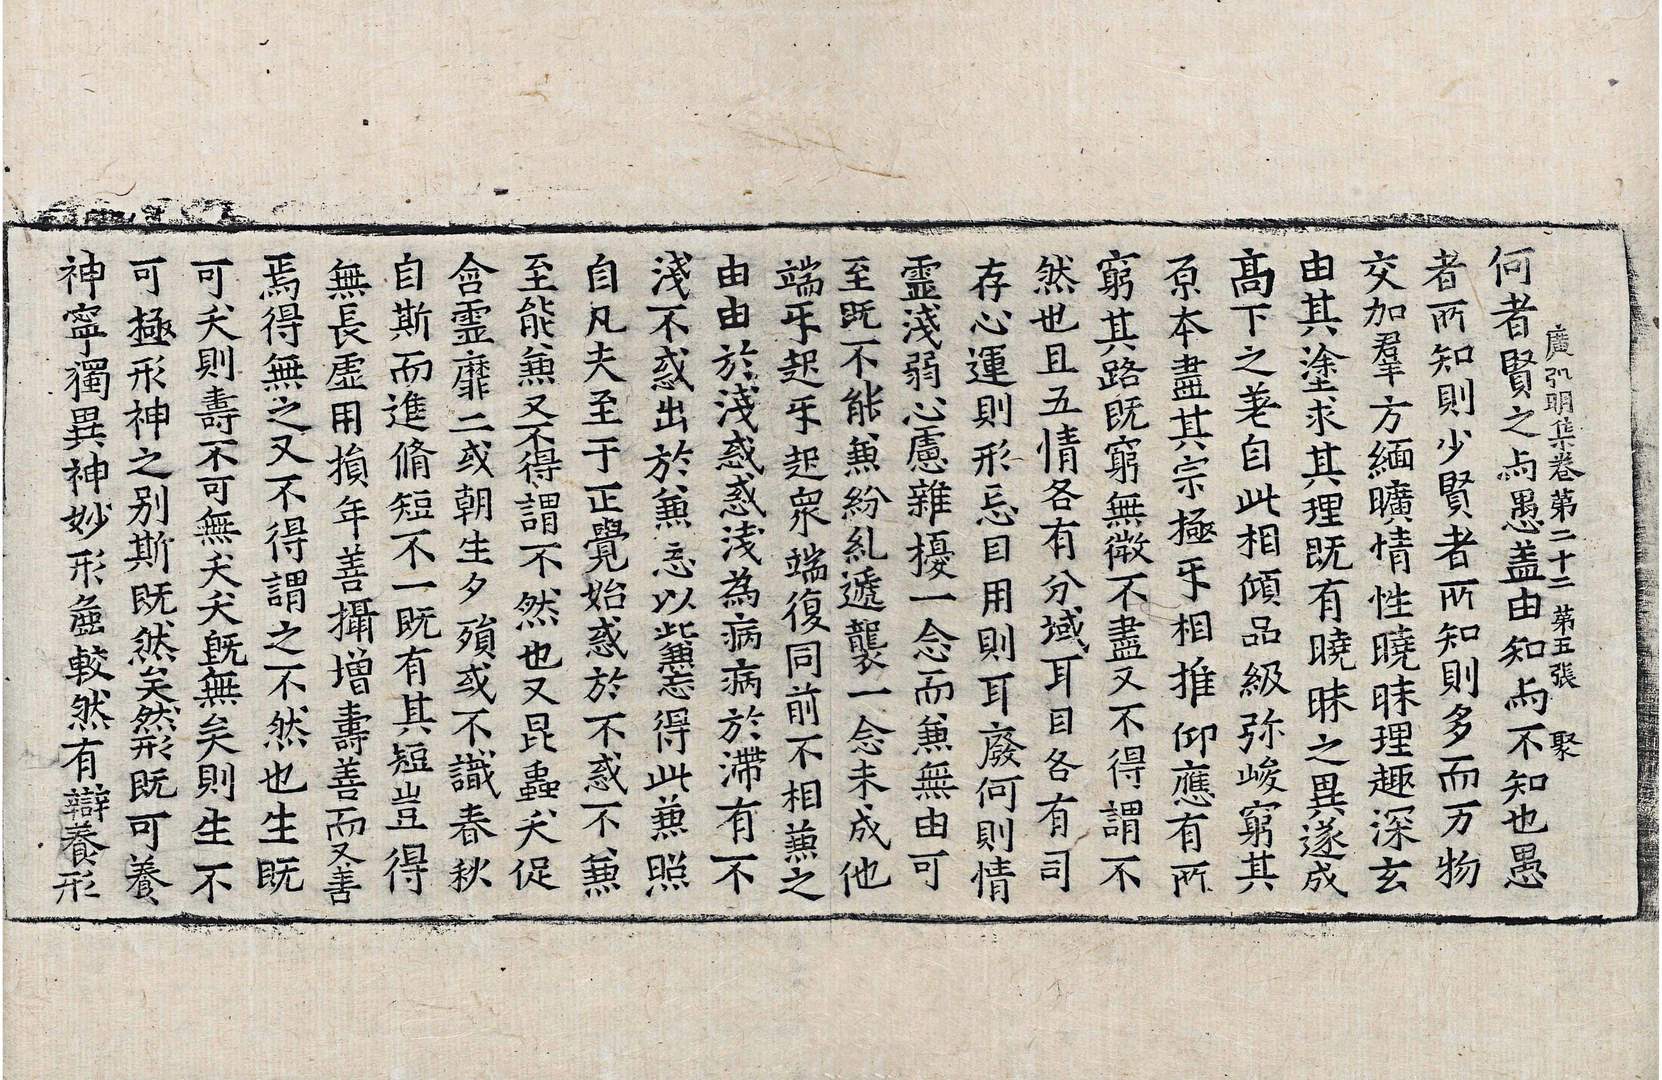 廣弘明集卷第二十二 第五張 聚
何者賢之与愚盖由知与不知也愚
者所知則少賢者所知則多而万物
交加羣方緬曠情性曉昧理趣深玄
由其塗求其理既有曉昧之異遂成
髙下之差自此相傾品級弥峻窮其
原本盡其宗極㸦相推仰應有所
窮其路既窮無微不盡又不得謂不
然也且五情各有分域耳目各有司
存心運則形忘目用則耳廢何則情
靈淺弱心慮雜擾一念而兼無由可
至既不能兼紛糺遞襲一念未成他
端㸦起㸦起衆端復同前不相兼之
由由於淺惑惑淺為病病於滯有不
淺不惑出於兼忘以此兼忘得此兼照
自凡夫至于正覺始惑於不惑不兼
至能兼又不得謂不然也又昆蟲夭促
含靈靡二或朝生夕殞或不識春秋
自斯而進脩短不一既有其短豈得
無長虛用損年善攝增壽善而又善
焉得無之又不得謂之不然也生既
可夭則壽不可無夭夭既無矣則生不
可極形神之別斯既然矣然形既可養
神寧獨異神妙形麁較然有辯養形